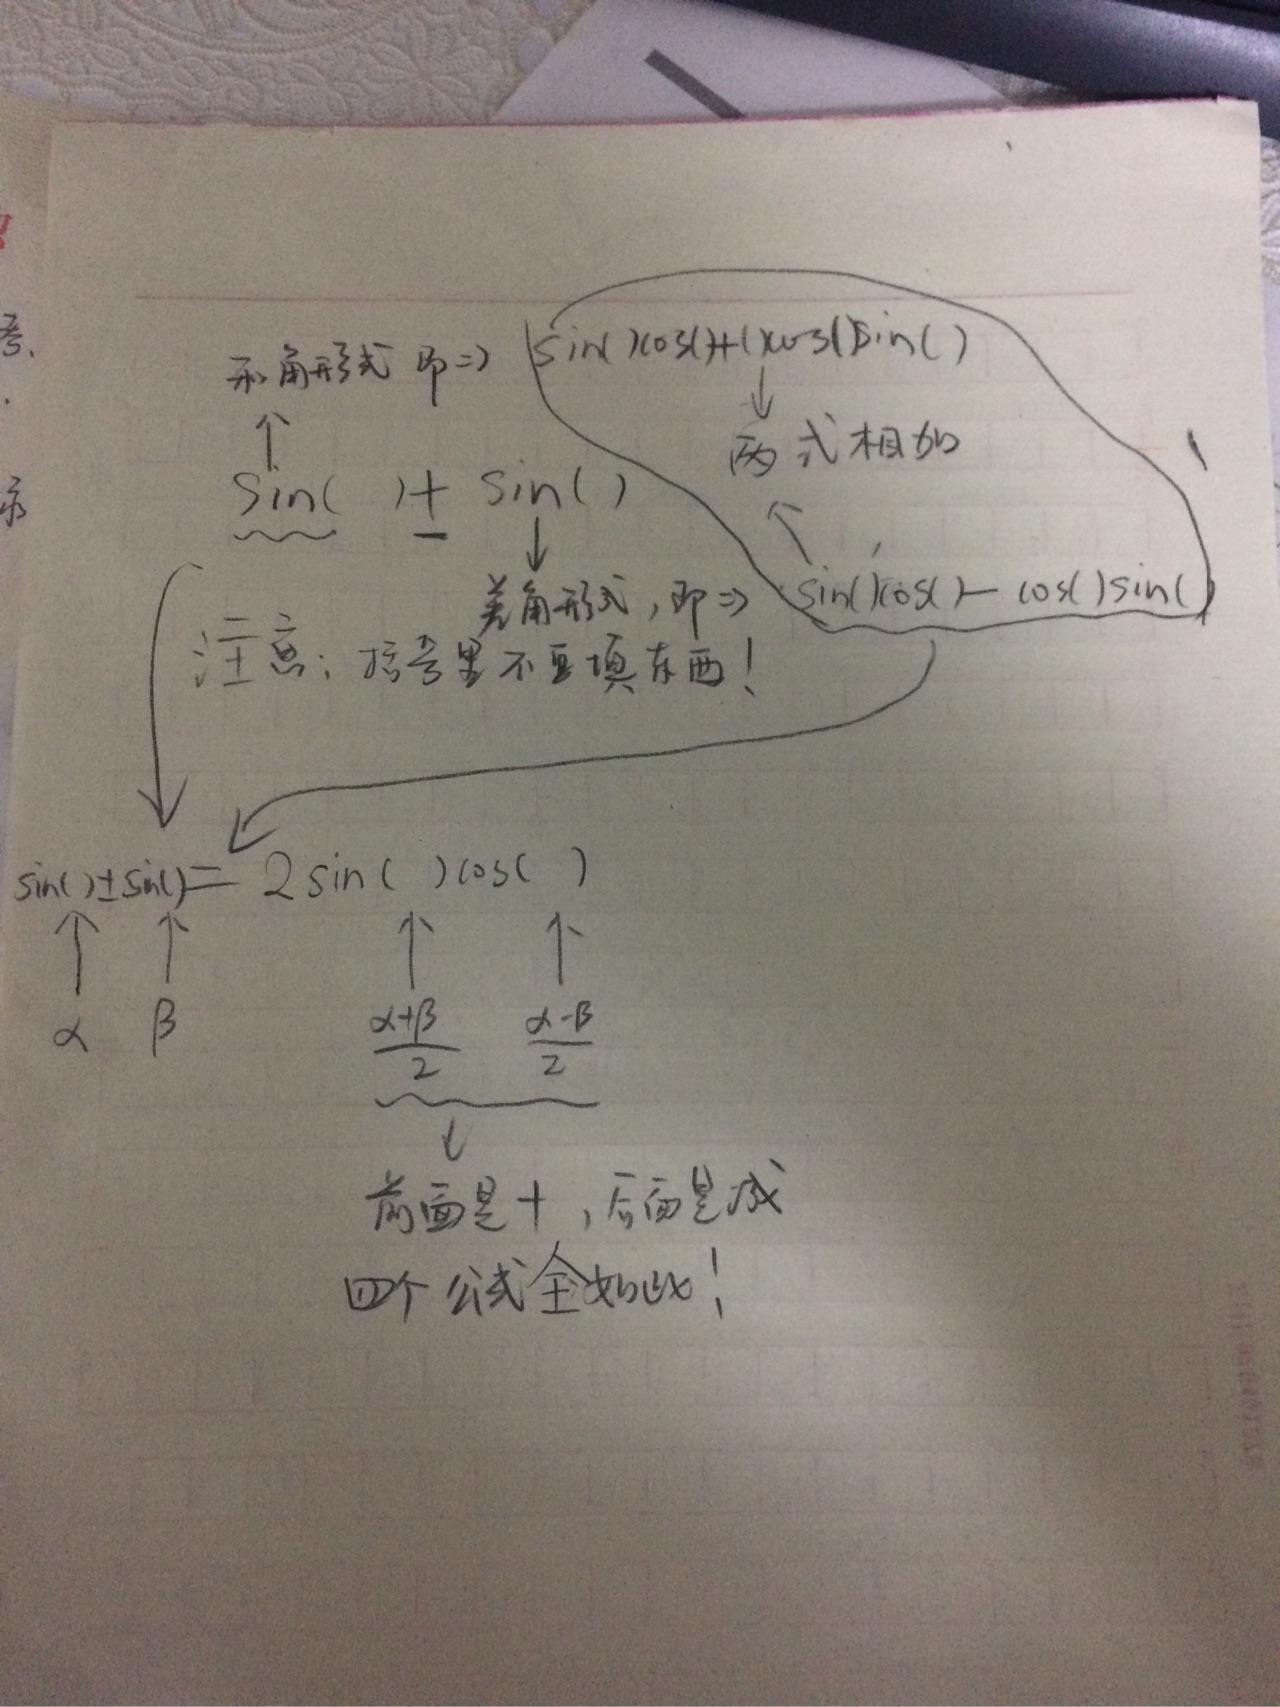 和角形式 即⇒ sin( )cos( )+( )cos( )sin( )
↓
两式相加
↑
sin( )+ sin( )
↓
差角形式，即⇒ sin( )cos( )- cos( )sin( )
注意：括号里不要填东西！
sin( )±sin( )= 2sin( )cos( )
↑ ↑ ↑ ↑
α β (α+β)/2 (α-β)/2
↓
前面是+，后面是减
四个公式全如此！